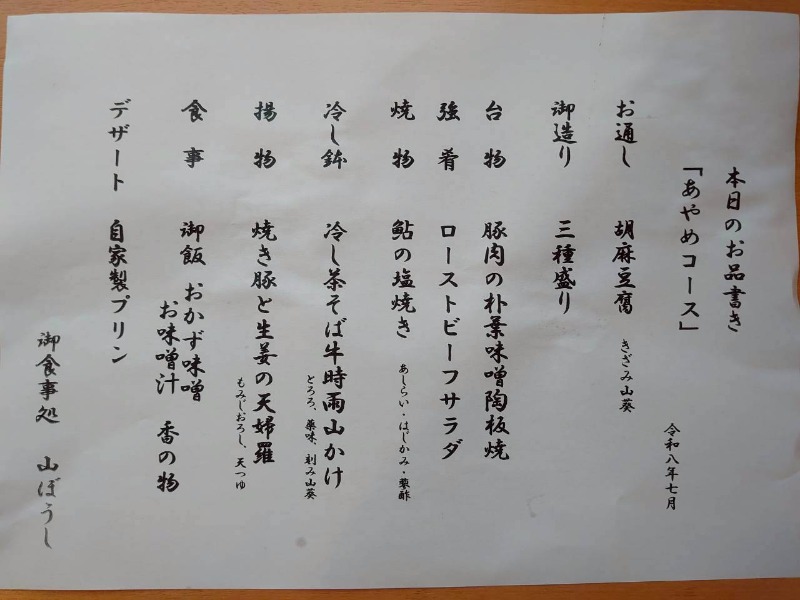 本日のお品書き
「あやめコース」
令和八年七月
お通し 胡麻豆腐 きざみ山葵
御造り 三種盛り
台物 豚肉の朴葉味噌陶板焼
強肴 ローストビーフサラダ
焼物 鮎の塩焼き
あしらい・はじかみ・蓼酢
冷し鉢 冷し茶そば牛時雨山かけ
とろろ、薬味、刻み山葵
揚物 焼き豚と生姜の天婦羅
もみじおろし、天つゆ
食事 御飯 おかず味噌
お味噌汁 香の物
デザート 自家製プリン
御食事処 山ぼうし